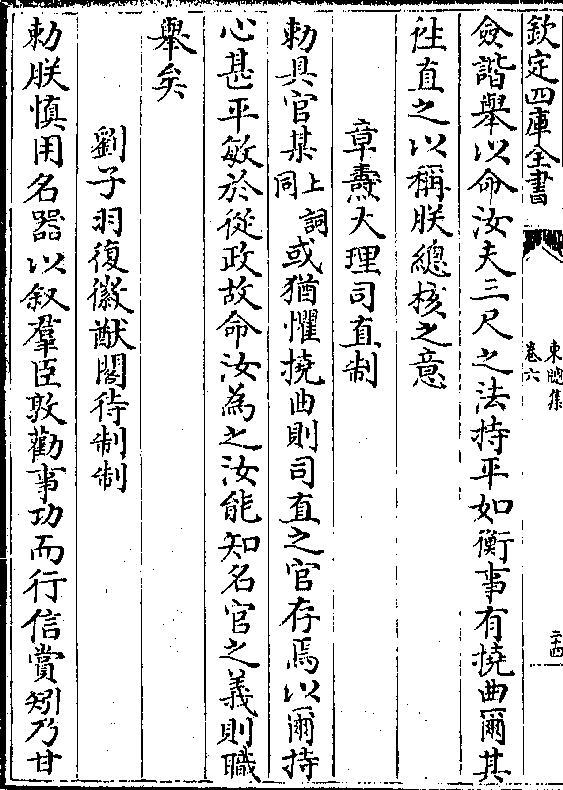 欽定四庫全書
東牕集
卷六
二十四
僉諧舉以命汝夫三尺之法持平如衡事有撓曲爾其
往直之以稱朕總核之意
章燾大理司直制
勅具官某上詞同或猶懼撓曲則司直之官存焉以爾持
心甚平敏於從政故命汝為之汝能知名官之義則職
舉矣
劉子羽復徽猷閣待制制
勅朕慎用名器以叙羣臣敦勸事功而行信賞矧乃甘